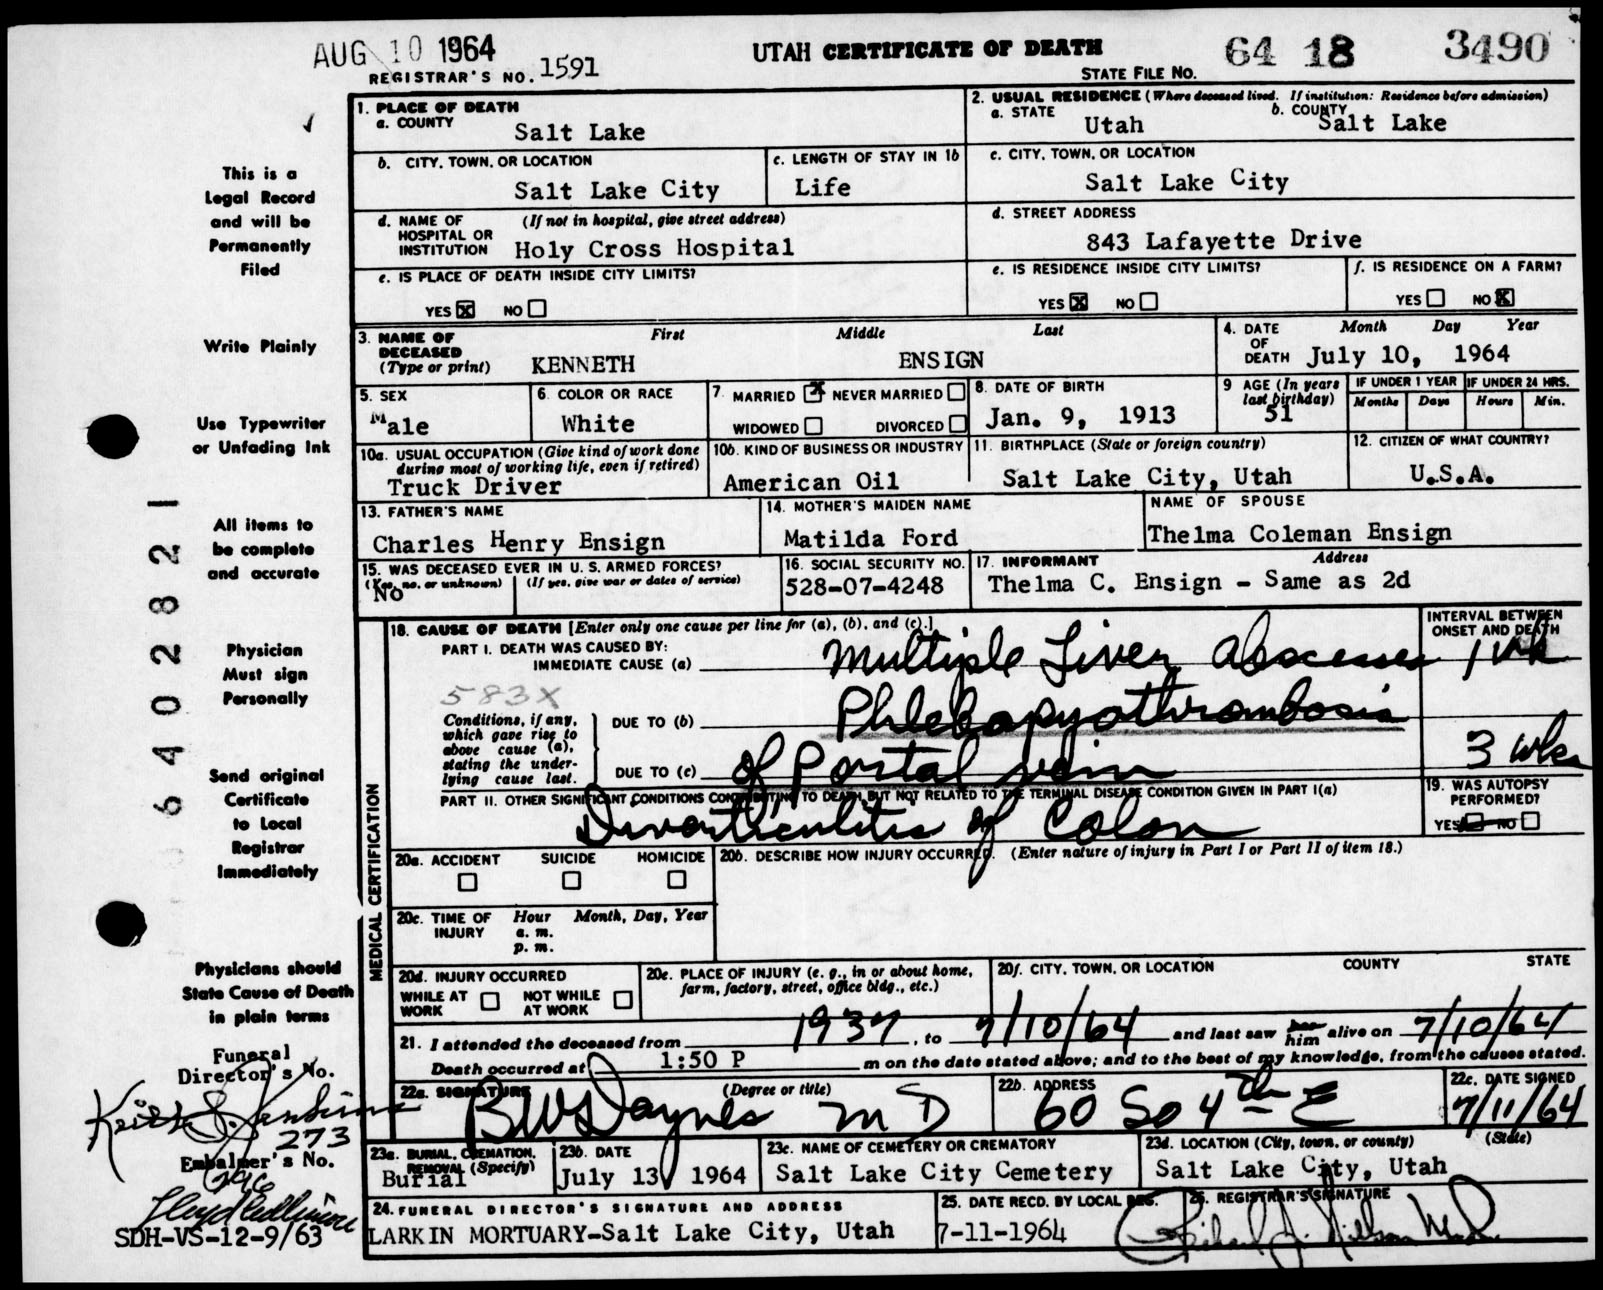 AUG 10 1964
UTAH CERTIFICATE OF DEATH
64 18 3490
REGISTRAR'S NO. 1591
STATE FILE NO.
1. PLACE OF DEATH
a. COUNTY
Salt Lake
2. USUAL RESIDENCE (Where deceased lived. If institution: Residence before admission)
a. STATE
Utah
b. COUNTY
Salt Lake
b. CITY, TOWN, OR LOCATION
Salt Lake City
c. LENGTH OF STAY IN 1b
Life
c. CITY, TOWN, OR LOCATION
Salt Lake City
d. NAME OF HOSPITAL OR INSTITUTION
(If not in hospital, give street address)
Holy Cross Hospital
d. STREET ADDRESS
843 Lafayette Drive
e. IS PLACE OF DEATH INSIDE CITY LIMITS?
YES X NO
e. IS RESIDENCE INSIDE CITY LIMITS?
YES X NO
f. IS RESIDENCE ON A FARM?
YES NO X
3. NAME OF DECEASED (Type or print)
First Middle Last
KENNETH ENSIGN
4. DATE OF DEATH
Month Day Year
July 10, 1964
5. SEX
Male
6. COLOR OR RACE
White
7. MARRIED X NEVER MARRIED
WIDOWED DIVORCED
8. DATE OF BIRTH
Jan. 9, 1913
9 AGE (In years last birthday)
51
IF UNDER 1 YEAR
Months Days
IF UNDER 24 HRS.
Hours Min.
10a. USUAL OCCUPATION (Give kind of work done during most of working life, even if retired)
Truck Driver
10b. KIND OF BUSINESS OR INDUSTRY
American Oil
11. BIRTHPLACE (State or foreign country)
Salt Lake City, Utah
12. CITIZEN OF WHAT COUNTRY?
U.S.A.
13. FATHER'S NAME
Charles Henry Ensign
14. MOTHER'S MAIDEN NAME
Matilda Ford
NAME OF SPOUSE
Thelma Coleman Ensign
15. WAS DECEASED EVER IN U. S. ARMED FORCES?
(Yes, no, or unknown) (If yes, give war or dates of service)
No
16. SOCIAL SECURITY NO.
528-07-4248
17. INFORMANT Address
Thelma C. Ensign - Same as 2d
MEDICAL CERTIFICATION
18. CAUSE OF DEATH [Enter only one cause per line for (a), (b), and (c).]
INTERVAL BETWEEN ONSET AND DEATH
PART I. DEATH WAS CAUSED BY:
IMMEDIATE CAUSE (a) Multiple Liver Abscesses 1 wk
583X
Conditions, if any, which gave rise to above cause (a), stating the underlying cause last.
DUE TO (b) Phlebopyothrombosis
DUE TO (c) of Portal vein 3 wks
PART II. OTHER SIGNIFICANT CONDITIONS CONTRIBUTING TO DEATH, BUT NOT RELATED TO THE TERMINAL DISEASE CONDITION GIVEN IN PART I(a)
Diverticulitis of Colon
19. WAS AUTOPSY PERFORMED?
YES NO
20a. ACCIDENT SUICIDE HOMICIDE
20b. DESCRIBE HOW INJURY OCCURRED. (Enter nature of injury in Part I or Part II of item 18.)
20c. TIME OF INJURY
Hour Month, Day, Year
a. m.
p. m.
20d. INJURY OCCURRED
WHILE AT WORK NOT WHILE AT WORK
20e. PLACE OF INJURY (e. g., in or about home, farm, factory, street, office bldg., etc.)
20f. CITY, TOWN, OR LOCATION COUNTY STATE
21. I attended the deceased from 1937, to 7/10/64 and last saw her him alive on 7/10/64
Death occurred at 1:50 P m on the date stated above; and to the best of my knowledge, from the causes stated.
22a. SIGNATURE (Degree or title)
BW Daynes MD
22b. ADDRESS
60 So 4th E
22c. DATE SIGNED
7/11/64
23a. BURIAL, CREMATION, REMOVAL (Specify)
Burial
23b. DATE
July 13, 1964
23c. NAME OF CEMETERY OR CREMATORY
Salt Lake City Cemetery
23d. LOCATION (City, town, or county) (State)
Salt Lake City, Utah
24. FUNERAL DIRECTOR'S SIGNATURE AND ADDRESS
LARKIN MORTUARY-Salt Lake City, Utah
25. DATE RECD. BY LOCAL REG.
7-11-1964
26. REGISTRAR'S SIGNATURE
This is a
Legal Record
and will be
Permanently
Filed
Write Plainly
Use Typewriter
or Unfading Ink
All items to
be complete
and accurate
Physician
Must sign
Personally
Send original
Certificate
to Local
Registrar
Immediately
Physicians should
State Cause of Death
in plain terms
Funeral
Director's No.
273
Embalmer's No.
SDH-VS-12-9/63
6402821